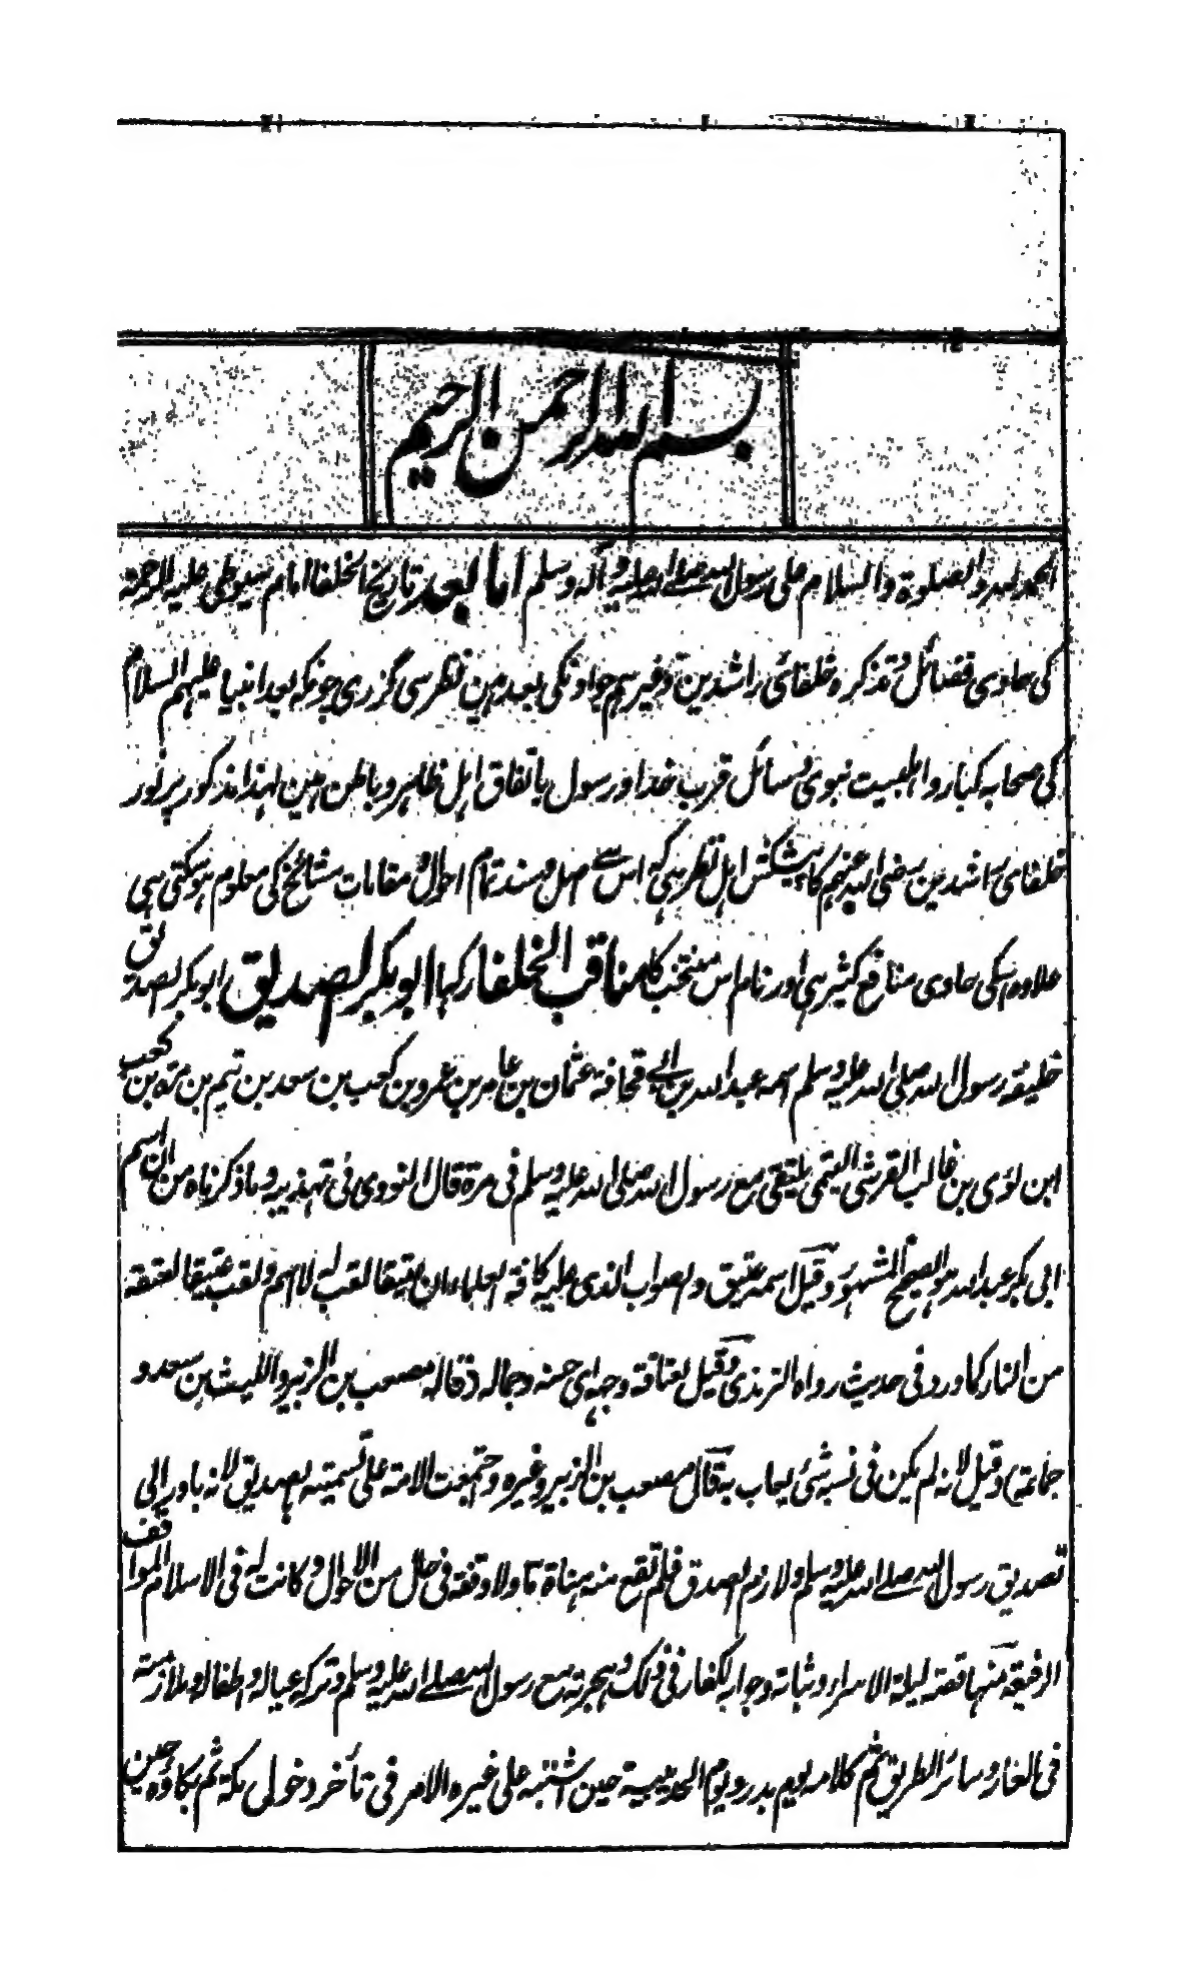 بسم الله الرحمن الرحیم
الحمد لله والصلوة والسلام علی رسول الله صلے الله علیه وآله وسلم اما بعد تاریخ الخلفا امام سیوطی علیه الرحمة
کی حاوی فضائل و تذکره خلفائی راشدین وغیرهم جو اونکی بعد ہین نظر سی گزری چونکه بعد انبیا علیهم السلام
کی صحابه کبار و اہلبیت نبوی وسائل قرب خدا و رسول باتفاق اہل ظاہر و باطن ہین لہذا مذکور پر نور
خلفای راشدین رضی الله عنهم کا پیشکش اہل نظر ہی که اس سے اصل و سند تمام احوال و مقامات مشائخ کی معلوم ہوسکتی ہی
علاوه اسکی حاوی منافع کثیر ہی اور نام اس منتخب کا مناقب الخلفا رکہا ابو بکر الصدیق ابو بکر الصدیق
خلیفة رسول الله صلی الله علیه وسلم اسمه عبد الله بن ابی قحافة عثمان بن عامر بن عمرو بن کعب بن سعد بن تیم بن مرة بن کعب
ابن لؤی بن غالب القرشی التیمی یلتقی مع رسول الله صلی الله علیه وسلم فی مرة قال النووی فی تهذیبه وما ذکرناه من ان اسم
ابی بکر عبد الله هو الصحیح المشهور وقیل اسمه عتیق والصواب الذی علیه کافة العلماء ان عتیقا لقب له لا اسم ولقب عتیقا لعتقه
من النار کما ورد فی حدیث رواه الترمذی وقیل لعتاقة وجهه ای حسنه وجماله (قاله مصعب بن الزبیر واللیث بن سعد و
جماعة) وقیل لانه لم یکن فی نسبه شئ یعاب به قال مصعب بن الزبیر وغیره واجتمعت الامة علی تسمیته بصدیق لانه بادر الی
تصدیق رسول الله صلے الله علیه وسلم ولازم الصدق فلم تقع منه هناة ما ولا وقفة فی حال من الاحوال وکانت له فی الاسلام المواقف
الرفیعة منها قصته لیلة الاسراء وثباته وجوابه للکفار فی ذلک وهجرته مع رسول الله صلے الله علیه وسلم وترک عیاله واطفاله وملازمته
فی الغار وسائر الطریق ثم کلامه یوم بدر ویوم الحدیبیة حین اشتبه علی غیره الامر فی تأخر دخول مکة ثم بکاؤه حین